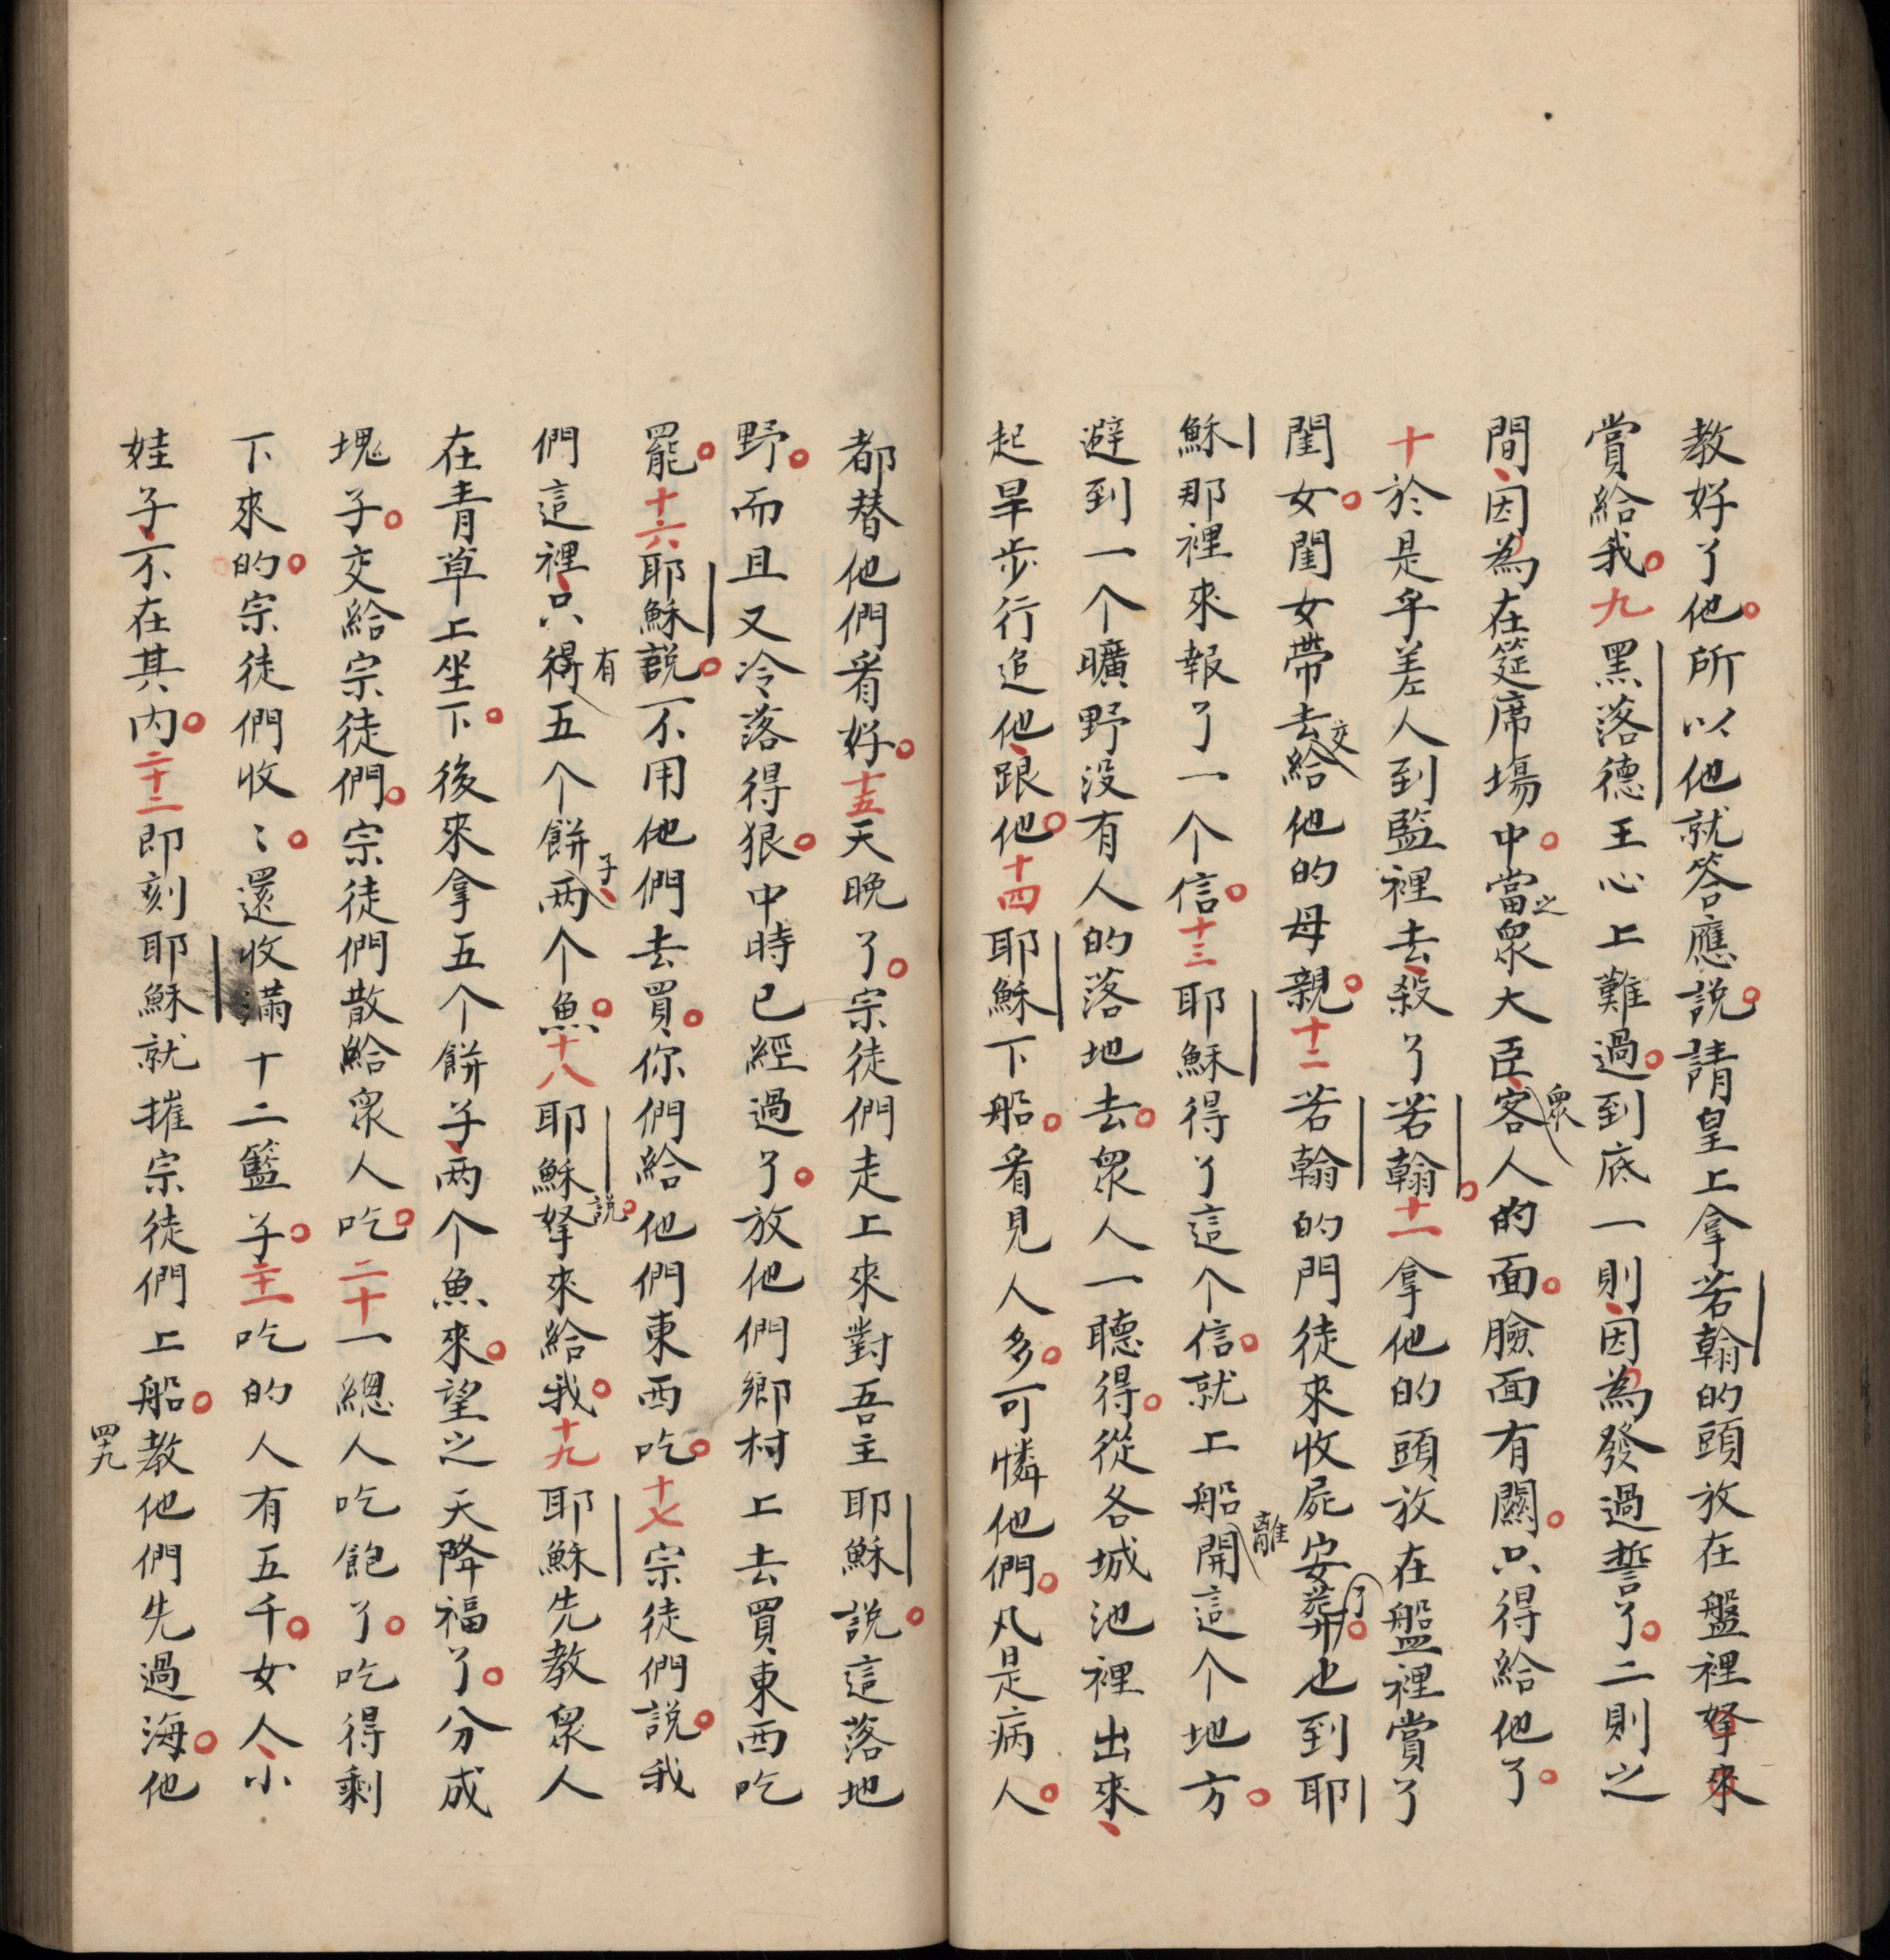 教好了他。所以他就答應說。請皇上拿若翰的頭放在盤裡拏來
賞給我。九黑落德王心上難過。到底一則、因為發過誓了。二則之
間、因為在筵席塲中。當之眾大臣、客眾人的面。臉面有關。只得給他了。
十於是乎差人到監裡去、殺了若翰。十一拿他的頭、放在盤裡賞了
閨女。閨女帶去給交他的母親。十二若翰的門徒來收屍安葬了。也到耶
穌那裡來報了一个信。十三耶穌得了這个信。就上船開離這个地方。
避到一个曠野没有人的落地去。眾人一聽得。從各城池裡出來、
起旱步行追他、跟他。十四耶穌下船。看見人多。可憐他們。凡是病人。
都替他們看好。十五天晚了。宗徒們走上來對吾主耶穌說。這落地
野。而且又冷落得狠。中時已經過了。放他們鄉村上去買東西吃
罷。十六耶穌說。不用他們去買。你們給他們東西吃。十七宗徒們說。我
們這裡、只得有五个餅子、两个魚。十八耶穌說。拏來給我。十九耶穌先教眾人
在青草上坐下。後來拿五个餅子、两个魚來。望之天降福了。分成
塊子。交給宗徒們。宗徒們散給眾人吃。二十一總人吃飽了。吃得剩
下來的。宗徒們收〻。還收滿十二籃子。二十一吃的人有五千。女人、小
娃子、不在其内。二十二即刻耶穌就摧宗徒們上船。教他們先過海。他
四十九